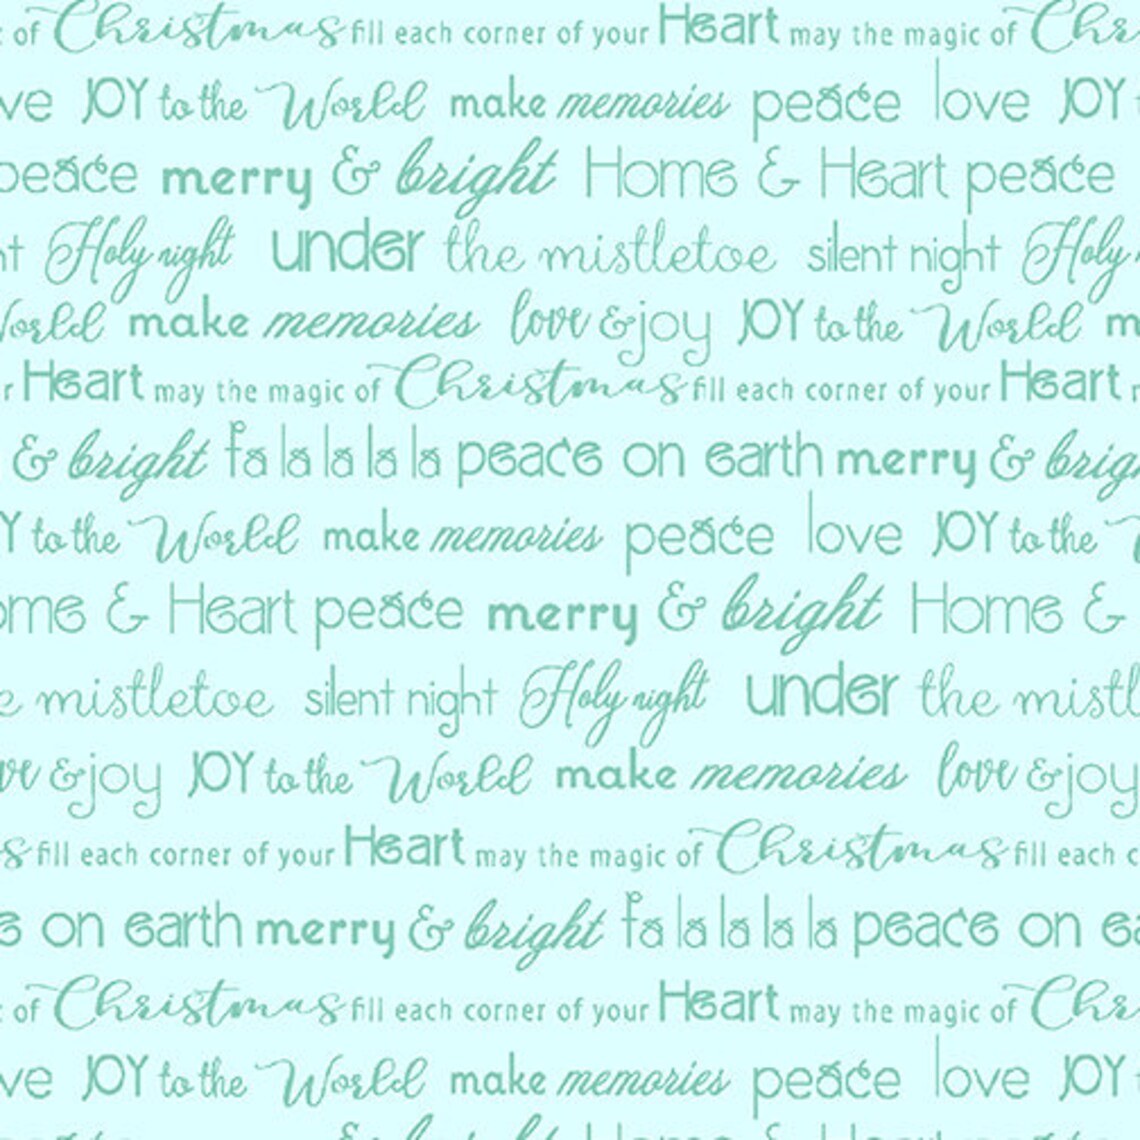 of Christmas fill each corner of your Heart may the magic of Chr
ve JOY to the World make memories peace love JOY
peace merry & bright Home & Heart peace
nt Holy night under the mistletoe silent night Holy
World make memories love & joy JOY to the World m
r Heart may the magic of Christmas fill each corner of your Heart m
& bright fa la la la la peace on earth merry & brig
Y to the World make memories peace love JOY to the
ome & Heart peace merry & bright Home &
e mistletoe silent night Holy night under the mistl
ve & joy JOY to the World make memories love & joy
s fill each corner of your Heart may the magic of Christmas fill each c
e on earth merry & bright fa la la la la peace on ea
of Christmas fill each corner of your Heart may the magic of Chr
ve JOY to the World make memories peace love JOY